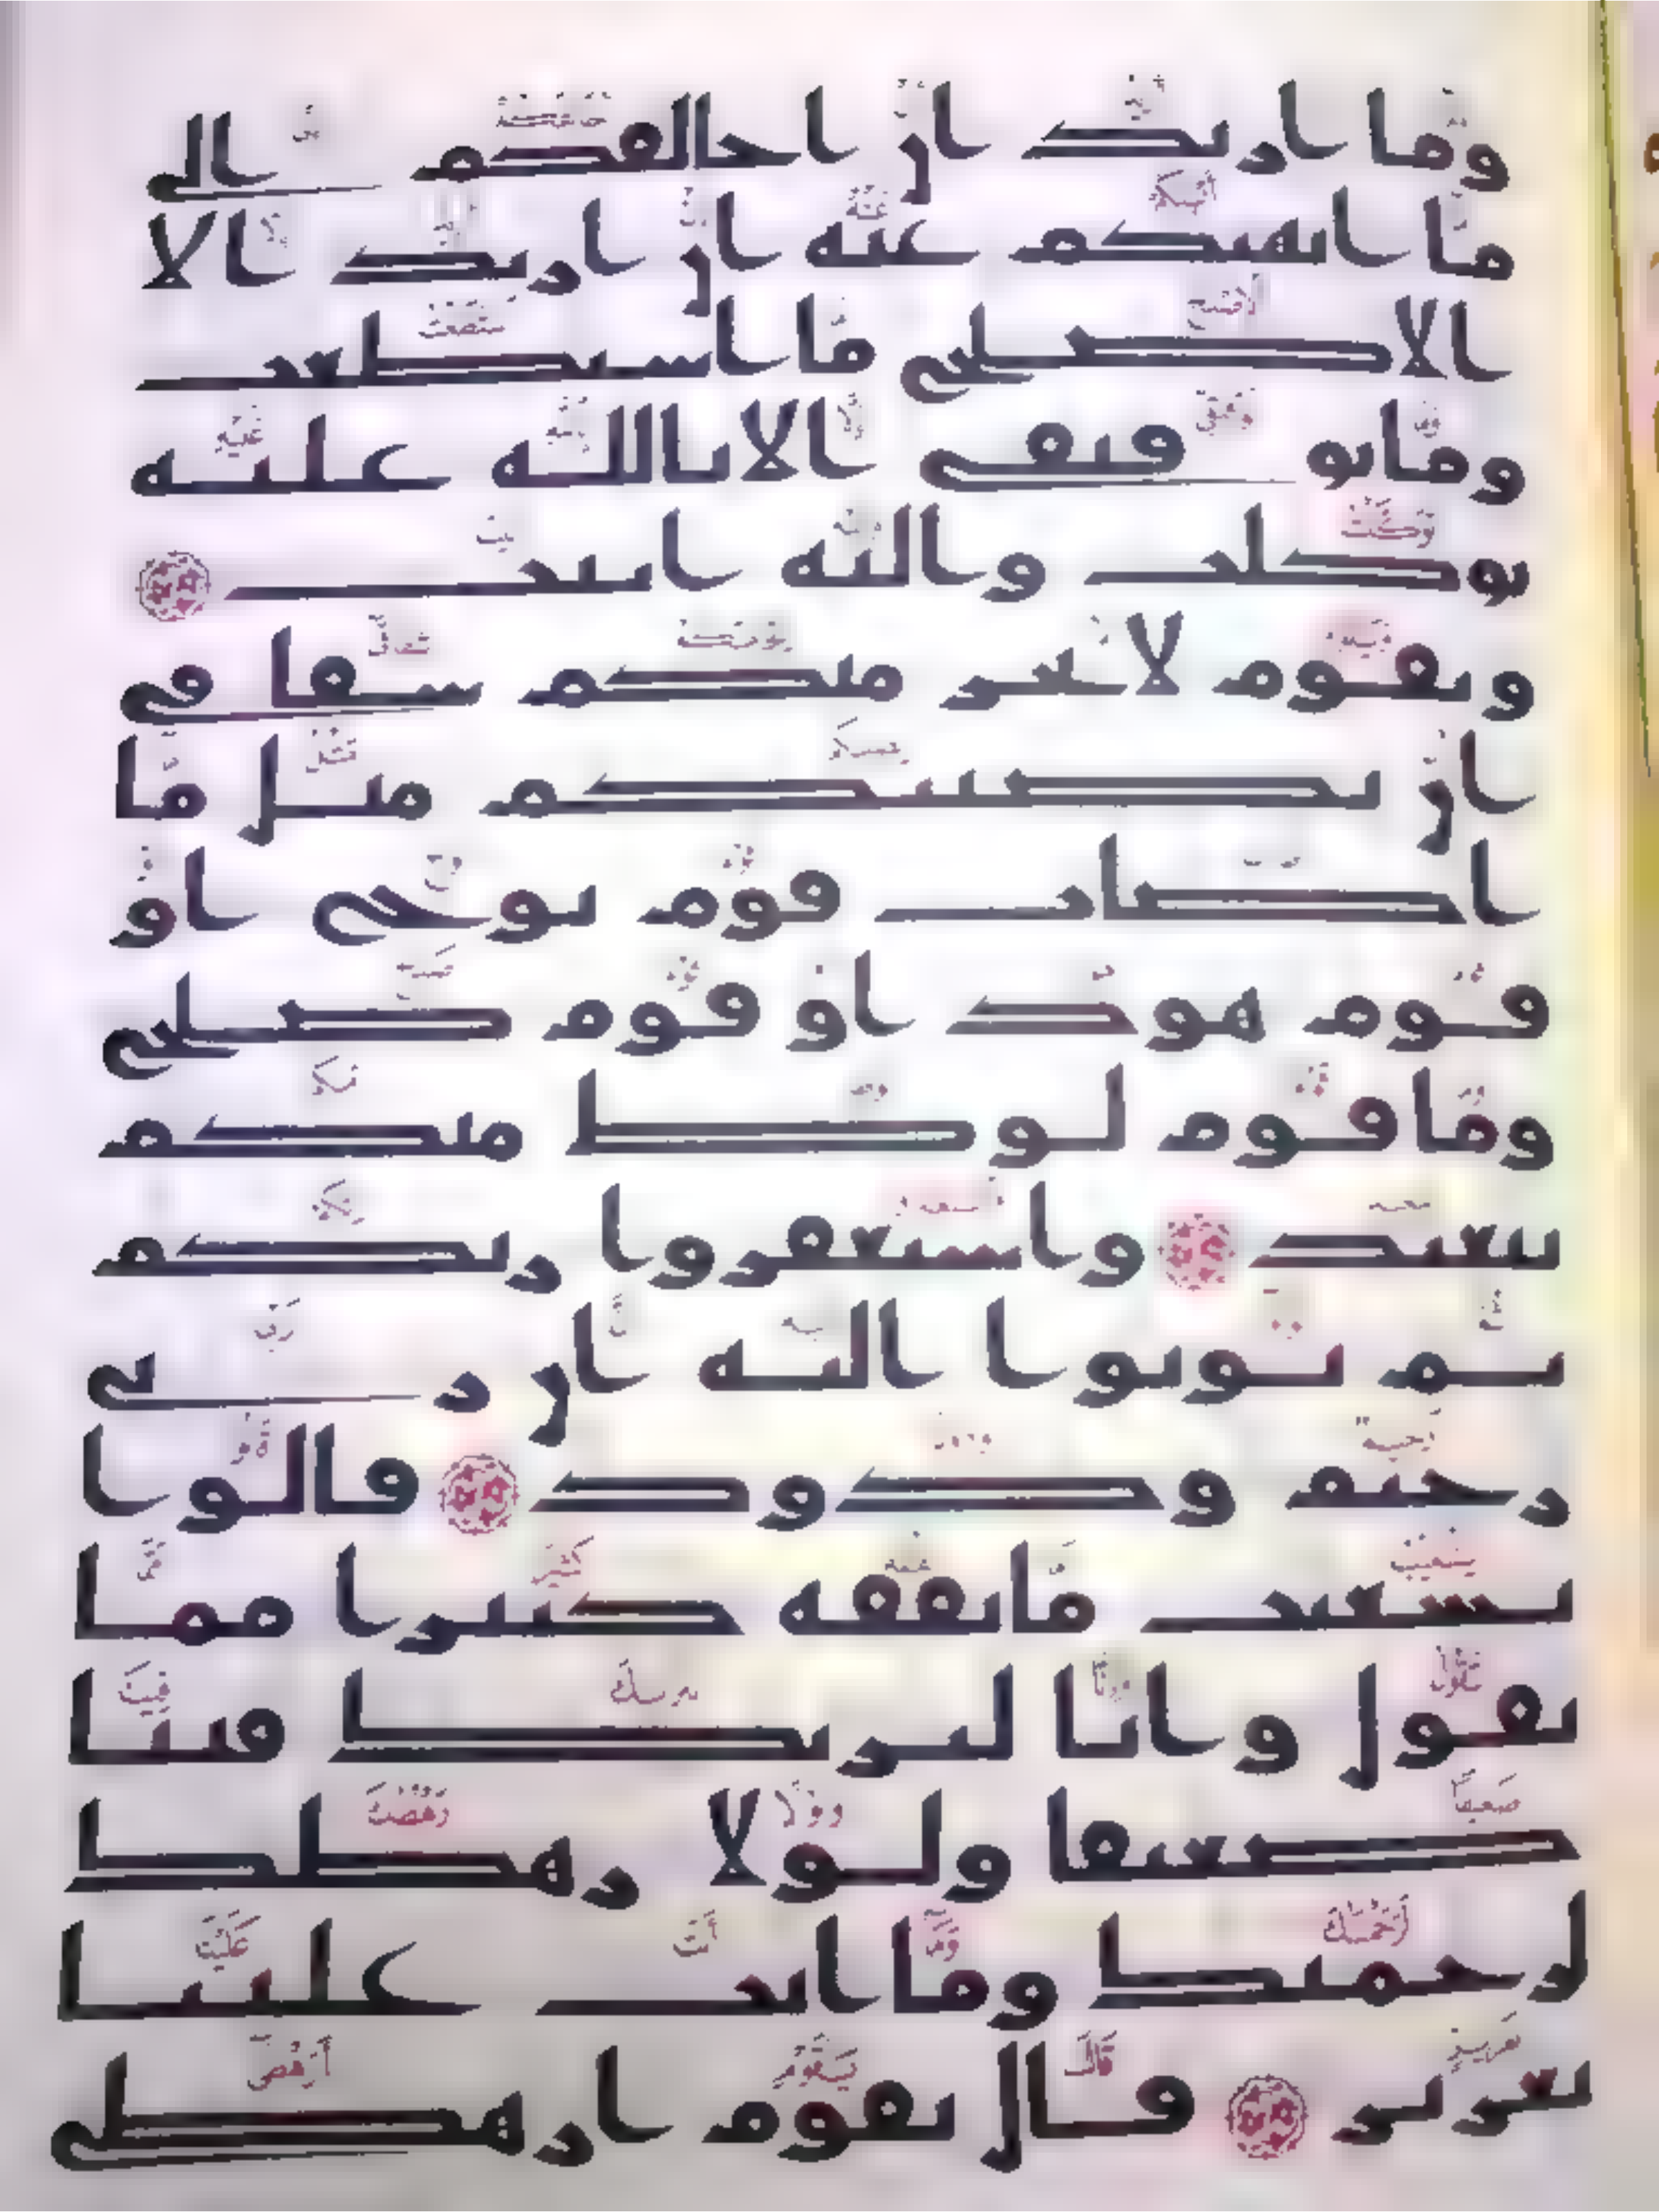 وما اريد ان اخالفكم الى
ما انهيكم عنه ان اريد الا
الاصلح ما استطعت
وما توفيقى الا بالله عليه
توكلت واليه انيب
ويقوم لا يجرمنكم شقاقى
ان يصيبكم مثل ما
اصاب قوم نوح او
قوم هود او قوم صلح
وما قوم لوط منكم
ببعيد واستغفروا ربكم
ثم توبوا اليه ان ربى
رحيم ودود قالوا
يشعيب ما نفقه كثيرا مما
تقول وانا لنريك فينا
ضعيفا ولولا رهطك
لرجمنك وما انت علينا
بعزيز قال يقوم ارهطى